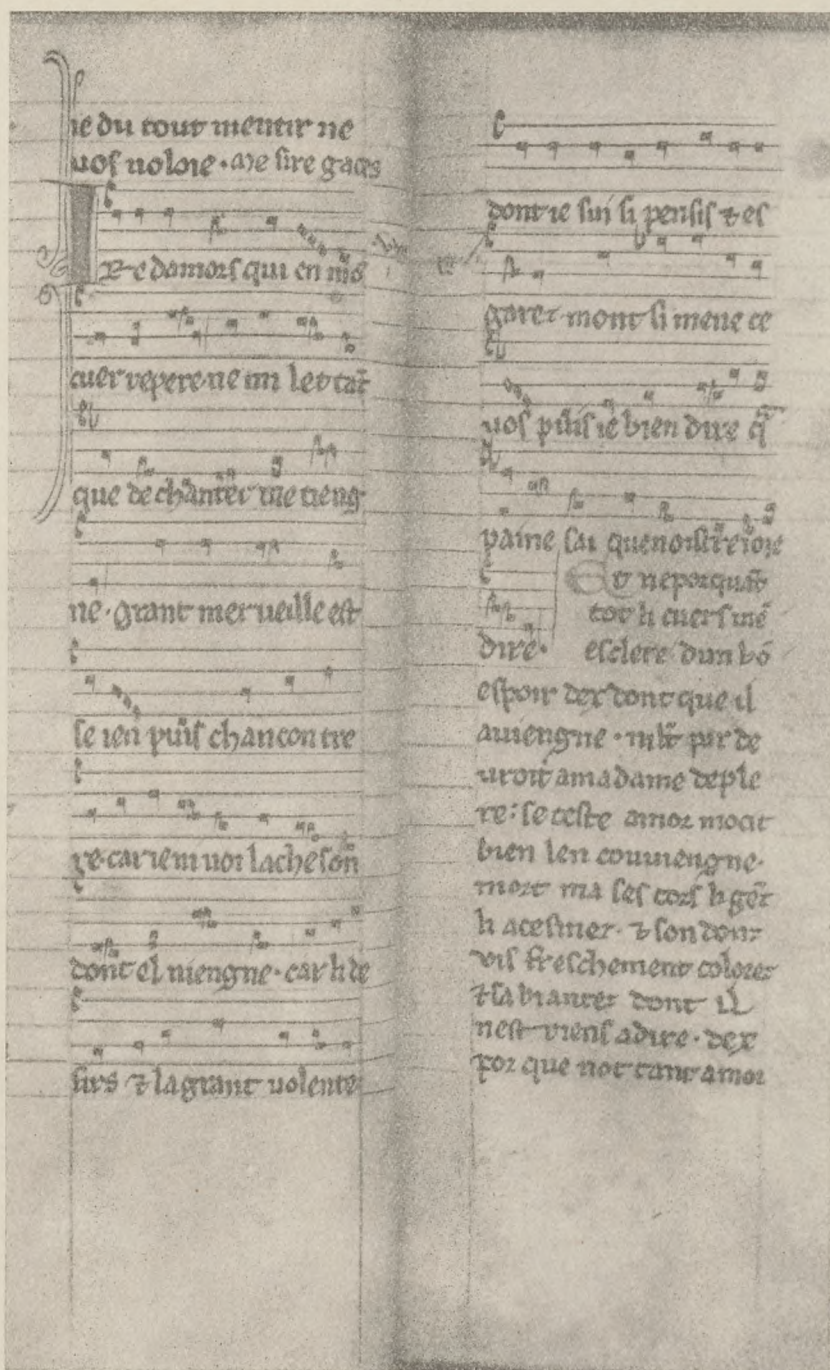 ie du tout mentir ne
uos uoloie · Me sire gaces
Ire damors qui en mō
cuer repere · ne mi let tāt
que de chanter me tieng
ne · grant merueille est
se ien puis chancon tre
re · car ie m uoi lacheson
dont el uiengne · car li de
sirs ⁊ la grant uolente
dont ie sui si pensis ⁊ es
garez · mont si mene ce
uos puis ie bien dire q̄
paine sai quenoistre ioie
dire ·
Et neporquāt
tot li cuers mē
esclere dun bō
espoir dex dont que il
auiengne · mlt̄ par de
uroit a madame deple
re: se ceste amor mocit
bien len couuiengne ·
mort ma ses cors li gēt
li acesmez · ⁊ son douz
vis freschement colorez
⁊ sa biautez dont il
nest riens a dire · dex
por que not tant amor